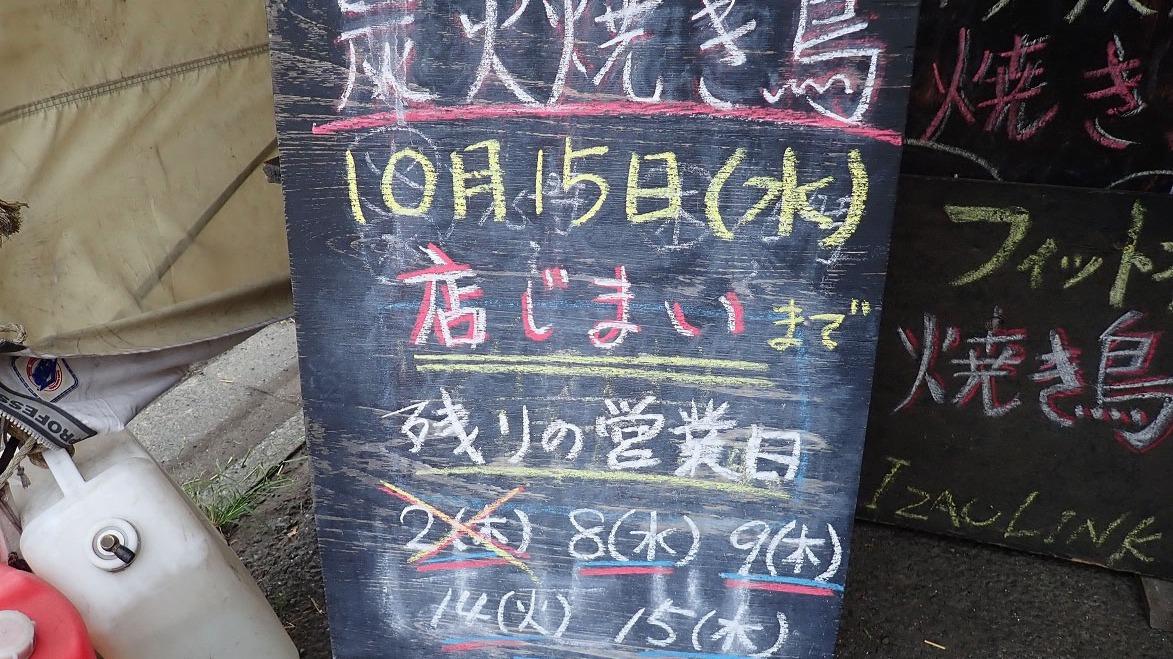 炭火焼き鳥
10月15日(水)
店じまいまで
残りの営業日
2(木) 8(水) 9(木)
14(火) 15(水)
焼き
フィット
焼き鳥
IZAULINK
PROFESS